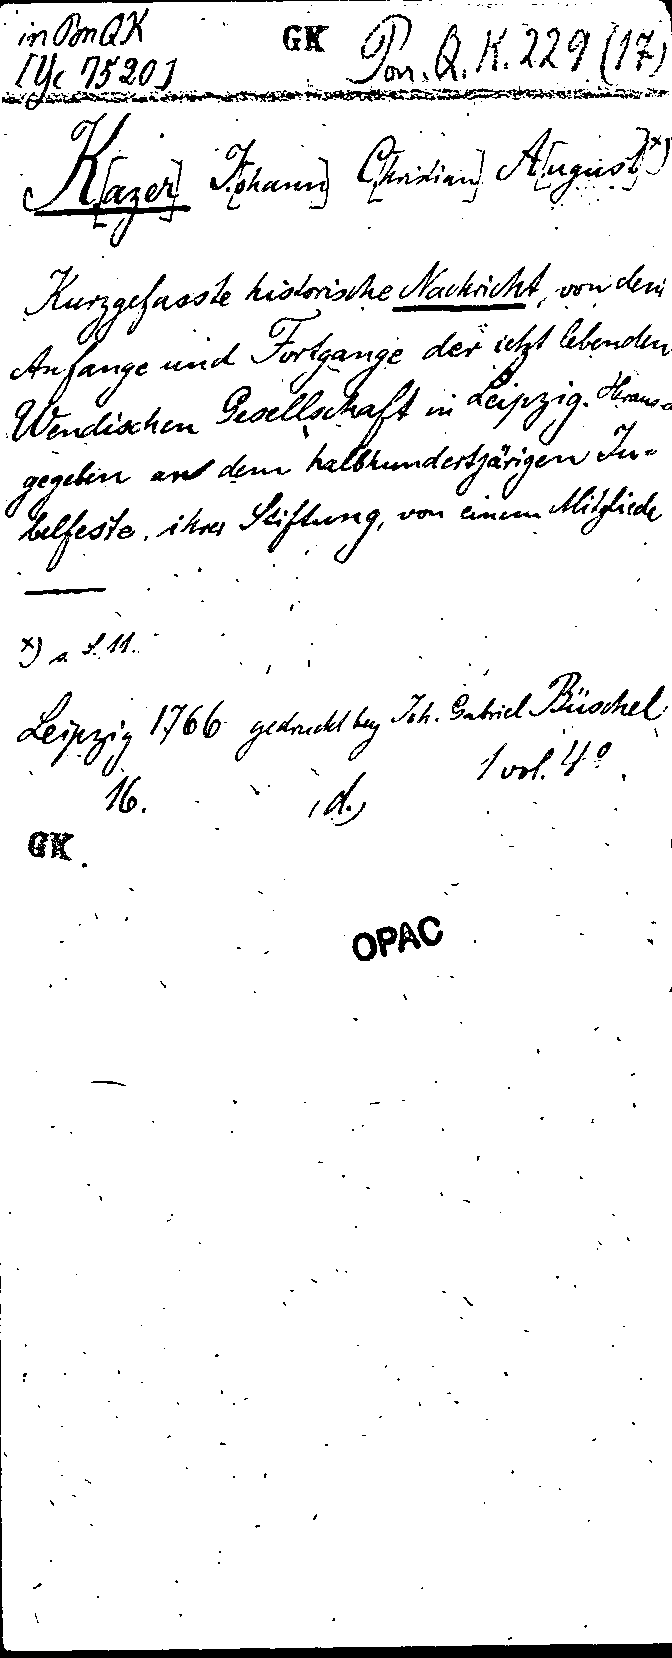 in Pon QK GK Pon. Q. K. 229 (17)
[Yc 7520]
K[azer] J[ohann] C[hristian] A[ugust] x)
Kurzgefasste historische Nachricht, von dem
Anfange und Fortgange der ietzt lebenden
Wendischen Gesellschaft in Leipzig. Heraus-
gegeben an dem halbhundertjärigen Ju-
belfeste, ihrer Stiftung, von einem Mitgliede
x) s. S. 11.
Leipzig 1766 gedruckt bey Joh. Gabriel Büschel
1 vol. 4°
16. (d.)
GK
OPAC